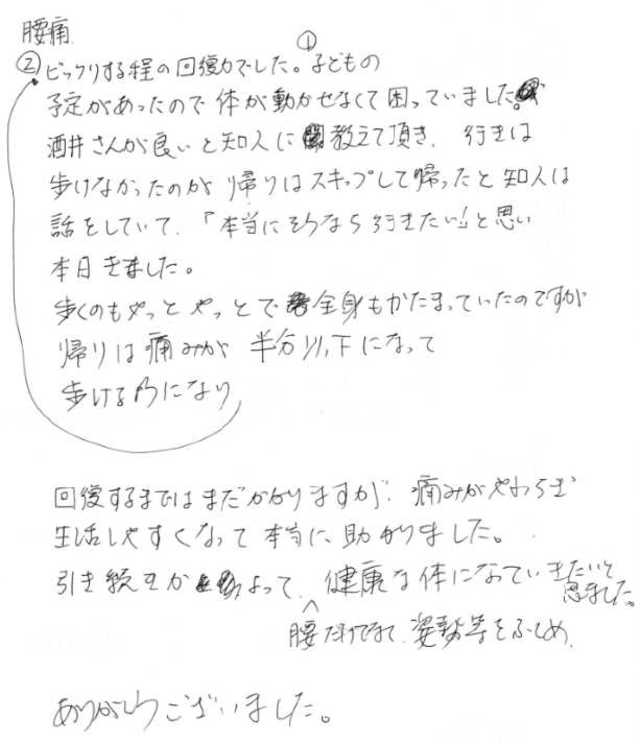 腰痛
① 
②ビックリする程の回復力でした。子どもの
予定があったので体が動かせなくて困っていました。
酒井さんが良いと知人に教えて頂き、行きは
歩けなかったのが帰りはスキップして帰ったと知人は
話をしていて、「本当にそうなら行きたい!」と思い
本日きました。
歩くのもやっとやっとで全身もかたまっていたのですが
帰りは痛みが半分以下になって
歩けるようになり
回復するまではまだかかりますが、痛みがやわらぎ
生活しやすくなって本当に助かりました。
引き続きかよって、健康な体になっていきたいと
思いました。
腰だけでなく、姿勢等をふくめ、
ありがとうございました。